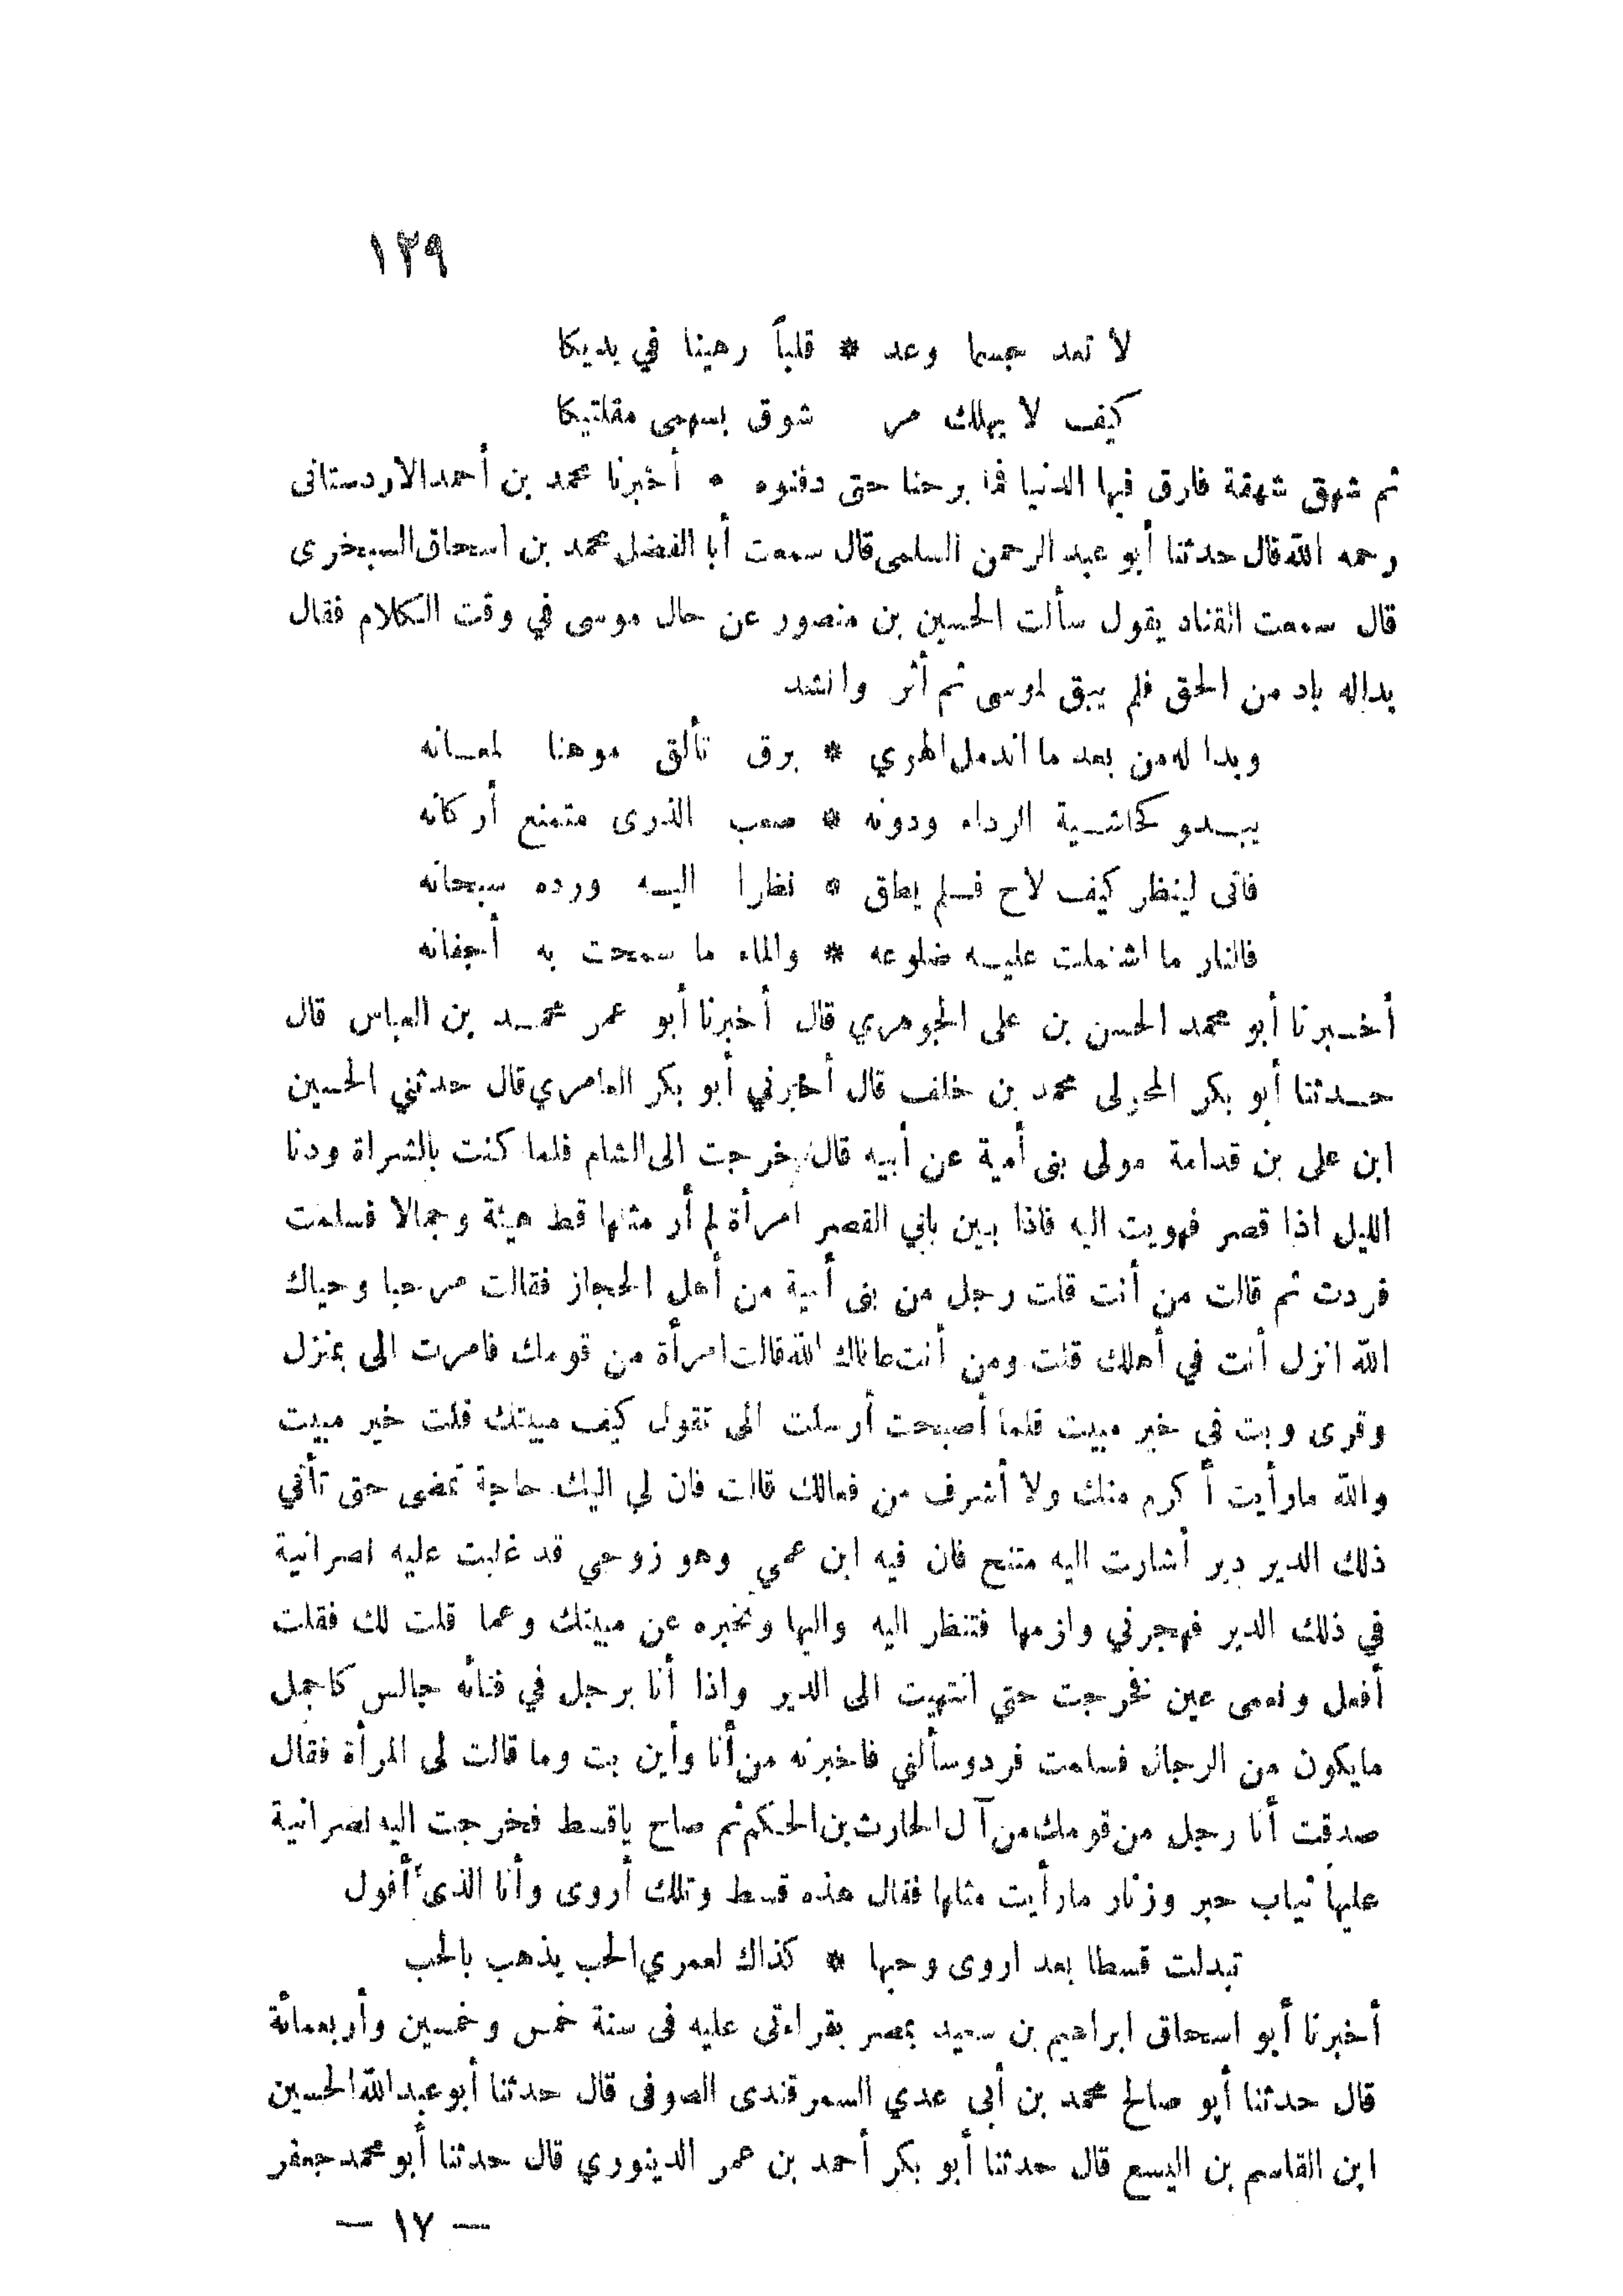 ١٢٩
لا تعد جسما وعد * قلباً رهينا في يديكا
كيف لا يهلك من شوق بسهمى مقلتيكا
ثم شهق شهقة فارق فيها الدنيا فما برحنا حتى دفنوه * أخبرنا محمد بن أحمد الاردستانى
رحمه الله قال حدثنا أبو عبد الرحمن السلمى قال سمعت أبا الفضل محمد بن اسحاق السجزى
قال سمعت القناد يقول سألت الحسين بن منصور عن حال موسى في وقت الكلام فقال
بداله باد من الحق فلم يبق لموسى ثم أثر وانشد
وبدا له من بعد ما اندمل الهوي * برق تألق موهنا لمعانه
يبدو كحاشية الرداء ودونه * صعب الذرى متمنع أركانه
فاتى لينظر كيف لاح فلم يطق * نظرا اليه ورده سبحانه
فالنار ما اشتملت عليه ضلوعه * والماء ما سمحت به أجفانه
أخبرنا أبو محمد الحسن بن على الجوهري قال أخبرنا أبو عمر محمد بن العباس قال
حدثنا أبو بكر المحولى محمد بن خلف قال أخبرني أبو بكر العامري قال حدثني الحسين
ابن على بن قدامة مولى بنى أمية عن أبيه قال خرجت الى الشام فلما كنت بالشراة ودنا
الليل اذا قصر فهويت اليه فاذا بين بابي القصر امرأة لم أر مثلها قط هيئة وجمالا فسلمت
فردت ثم قالت من أنت قلت رجل من بنى أمية من أهل الحجاز فقالت مرحبا وحياك
الله انزل أنت في أهلك قلت ومن أنت عافاك الله قالت امرأة من قومك فامرت الى بمنزل
وقرى وبت في خير مبيت فلما أصبحت أرسلت الى تقول كيف مبيتك قلت خير مبيت
والله مارأيت أكرم منك ولا أشرف من فعالك قالت فان لي اليك حاجة تمضى حتى تأتي
ذلك الدير دير أشارت اليه متنح فان فيه ابن عمي وهو زوجي قد غلبت عليه نصرانية
في ذلك الدير فهجرني ولزمها فتنظر اليه واليها وتخبره عن مبيتك وعما قلت لك فقلت
أفعل ونعمى عين فخرجت حتي انتهيت الى الدير واذا أنا برجل في فنائه جالس كاجمل
مايكون من الرجال فسلمت فرد وسألني فاخبرته من أنا وأين بت وما قالت لى المرأة فقال
صدقت أنا رجل من قومك من آل الحارث بن الحكم ثم صاح ياقسط فخرجت اليه نصرانية
عليها ثياب حبر وزنار مارأيت مثلها فقال هذه قسط وتلك أروى وأنا الذى أقول
تبدلت قسطا بعد اروى وحبها * كذاك لعمري الحب يذهب بالحب
أخبرنا أبو اسحاق ابراهيم بن سعيد بمصر بقراءتى عليه فى سنة خمس وخمسين وأربعمائة
قال حدثنا أبو صالح محمد بن أبى عدي السمرقندى الصوفى قال حدثنا أبو عبد الله الحسين
ابن القاسم بن اليسع قال حدثنا أبو بكر أحمد بن عمر الدينوري قال حدثنا أبو محمد جعفر
— ١٧ —